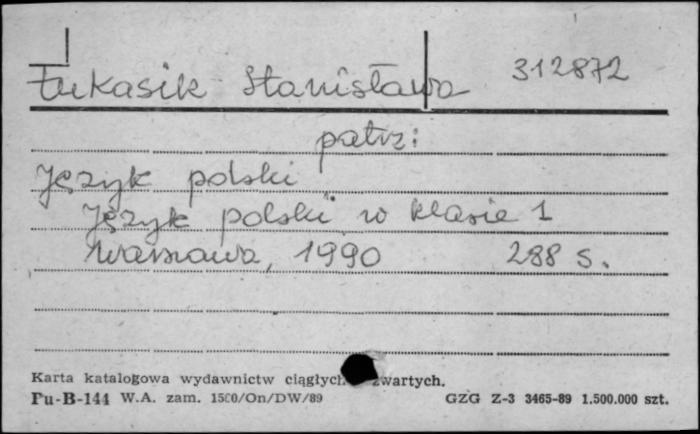 Łukasik Stanisława 312872
patrz:
Język polski
Język polski w klasie 1
Warszawa, 1990 288 s.
Karta katalogowa wydawnictw ciągłych zwartych.
Pu-B-144 W.A. zam. 1500/On/DW/89 GZG Z-3 3465-89 1.500.000 szt.